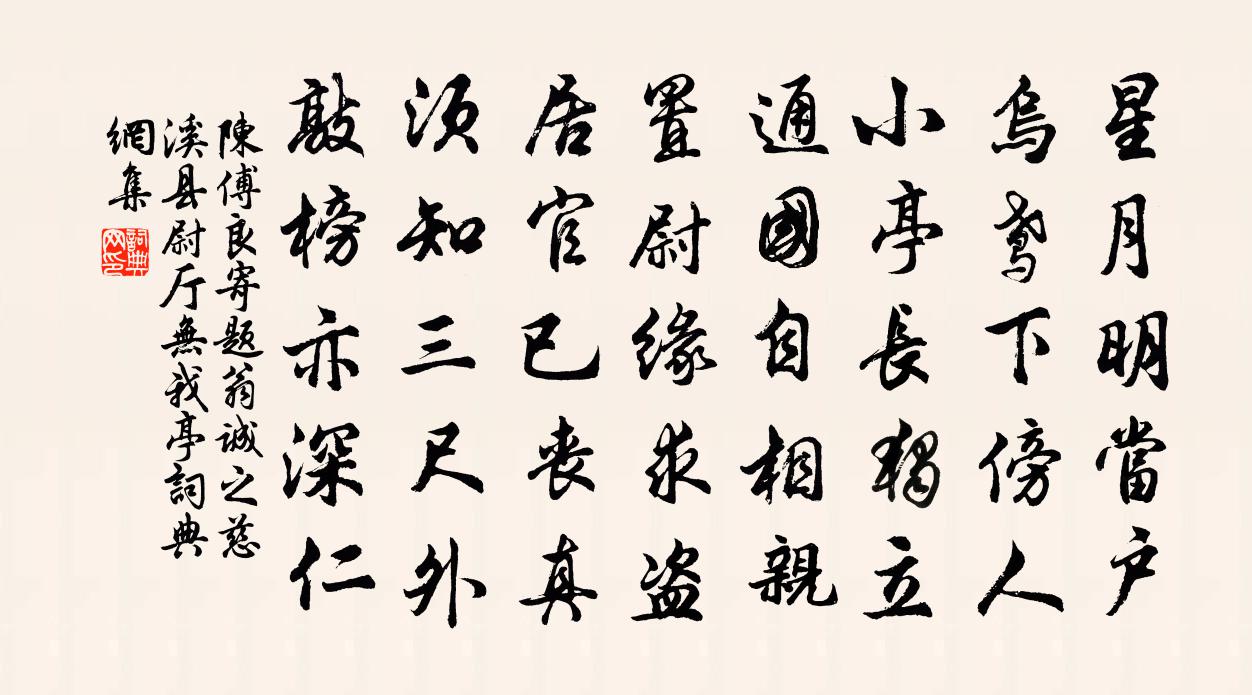 星月明當戶
烏鳶下傍人
小亭長獨立
通國自相親
置尉緣求盜
居官已喪真
須知三尺外
敲榜亦深仁
陳傅良寄題翁誠之慈
溪县尉厅無我亭詞典
網集
詞典
网印